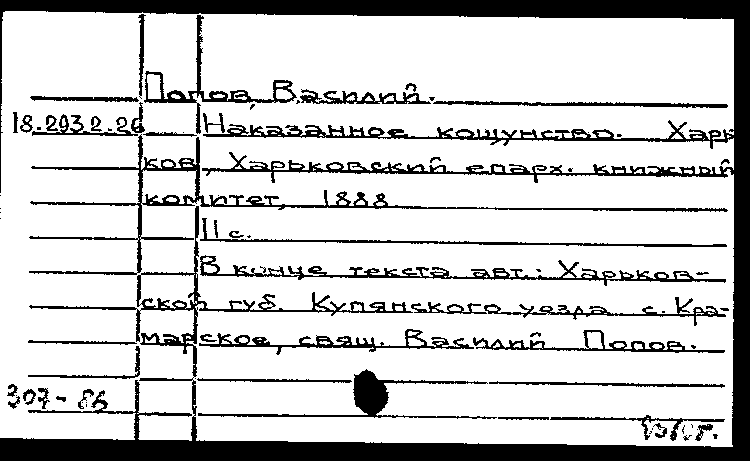 Попов, Василий.
18.293.2.26 Наказанное кощунство. Харь
ков, Харьковский епарх. книжный
комитет, 1888
11 с.
В конце текста авт.: Харьков-
ской губ. Купянского уезда с. Кра-
марское, свящ. Василий Попов.
307-86